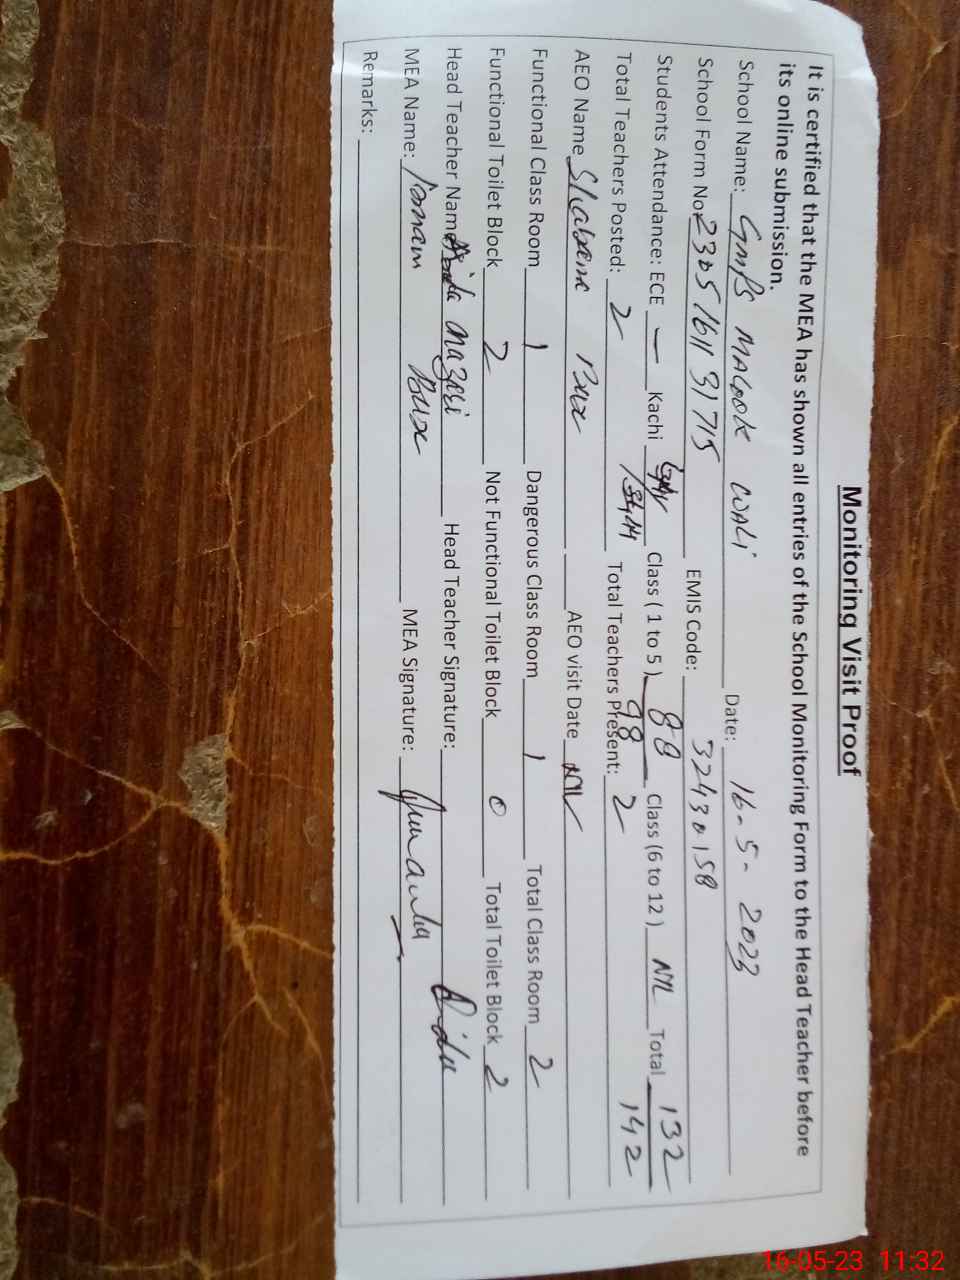 Monitoring Visit Proof
It is certified that the MEA has shown all entries of the School Monitoring Form to the Head Teacher before
its online submission.
School Name: GMPS MALOOK WALI Date: 16-5-2023
School Form No 23051611 31715 EMIS Code: 32430158
Students Attendance: ECE — Kachi Class ( 1 to 5 ) 88 Class (6 to 12 ) NIL Total 132
98 142
Total Teachers Posted: 2 Total Teachers Present: 2
AEO Name Shabana Bux AEO visit Date NIL
Functional Class Room 1 Dangerous Class Room 1 Total Class Room 2
Functional Toilet Block 2 Not Functional Toilet Block 0 Total Toilet Block 2
Head Teacher Name Mazari Head Teacher Signature:
MEA Name: Bux MEA Signature:
Remarks:
16-05-23 11:32